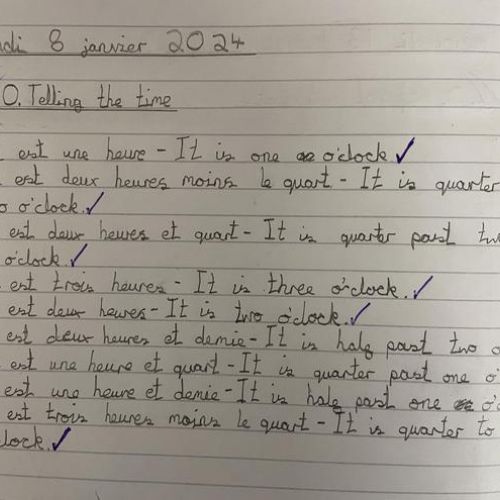 di 8 janvier 2024
0. Telling the time
est une heure - It is one o'clock ✓
est deux heures moins le quart - It is quarter
o o'clock. ✓
est deux heures et quart - It is quarter past tw
o'clock. ✓
est trois heures - It is three o'clock. ✓
est deux heures - It is two o'clock. ✓
est deux heures et demie - It is half past two o
est une heure et quart - It is quarter past one o
est une heure et demie - It is half past one o'c
est trois heures moins le quart - It is quarter to
lock. ✓